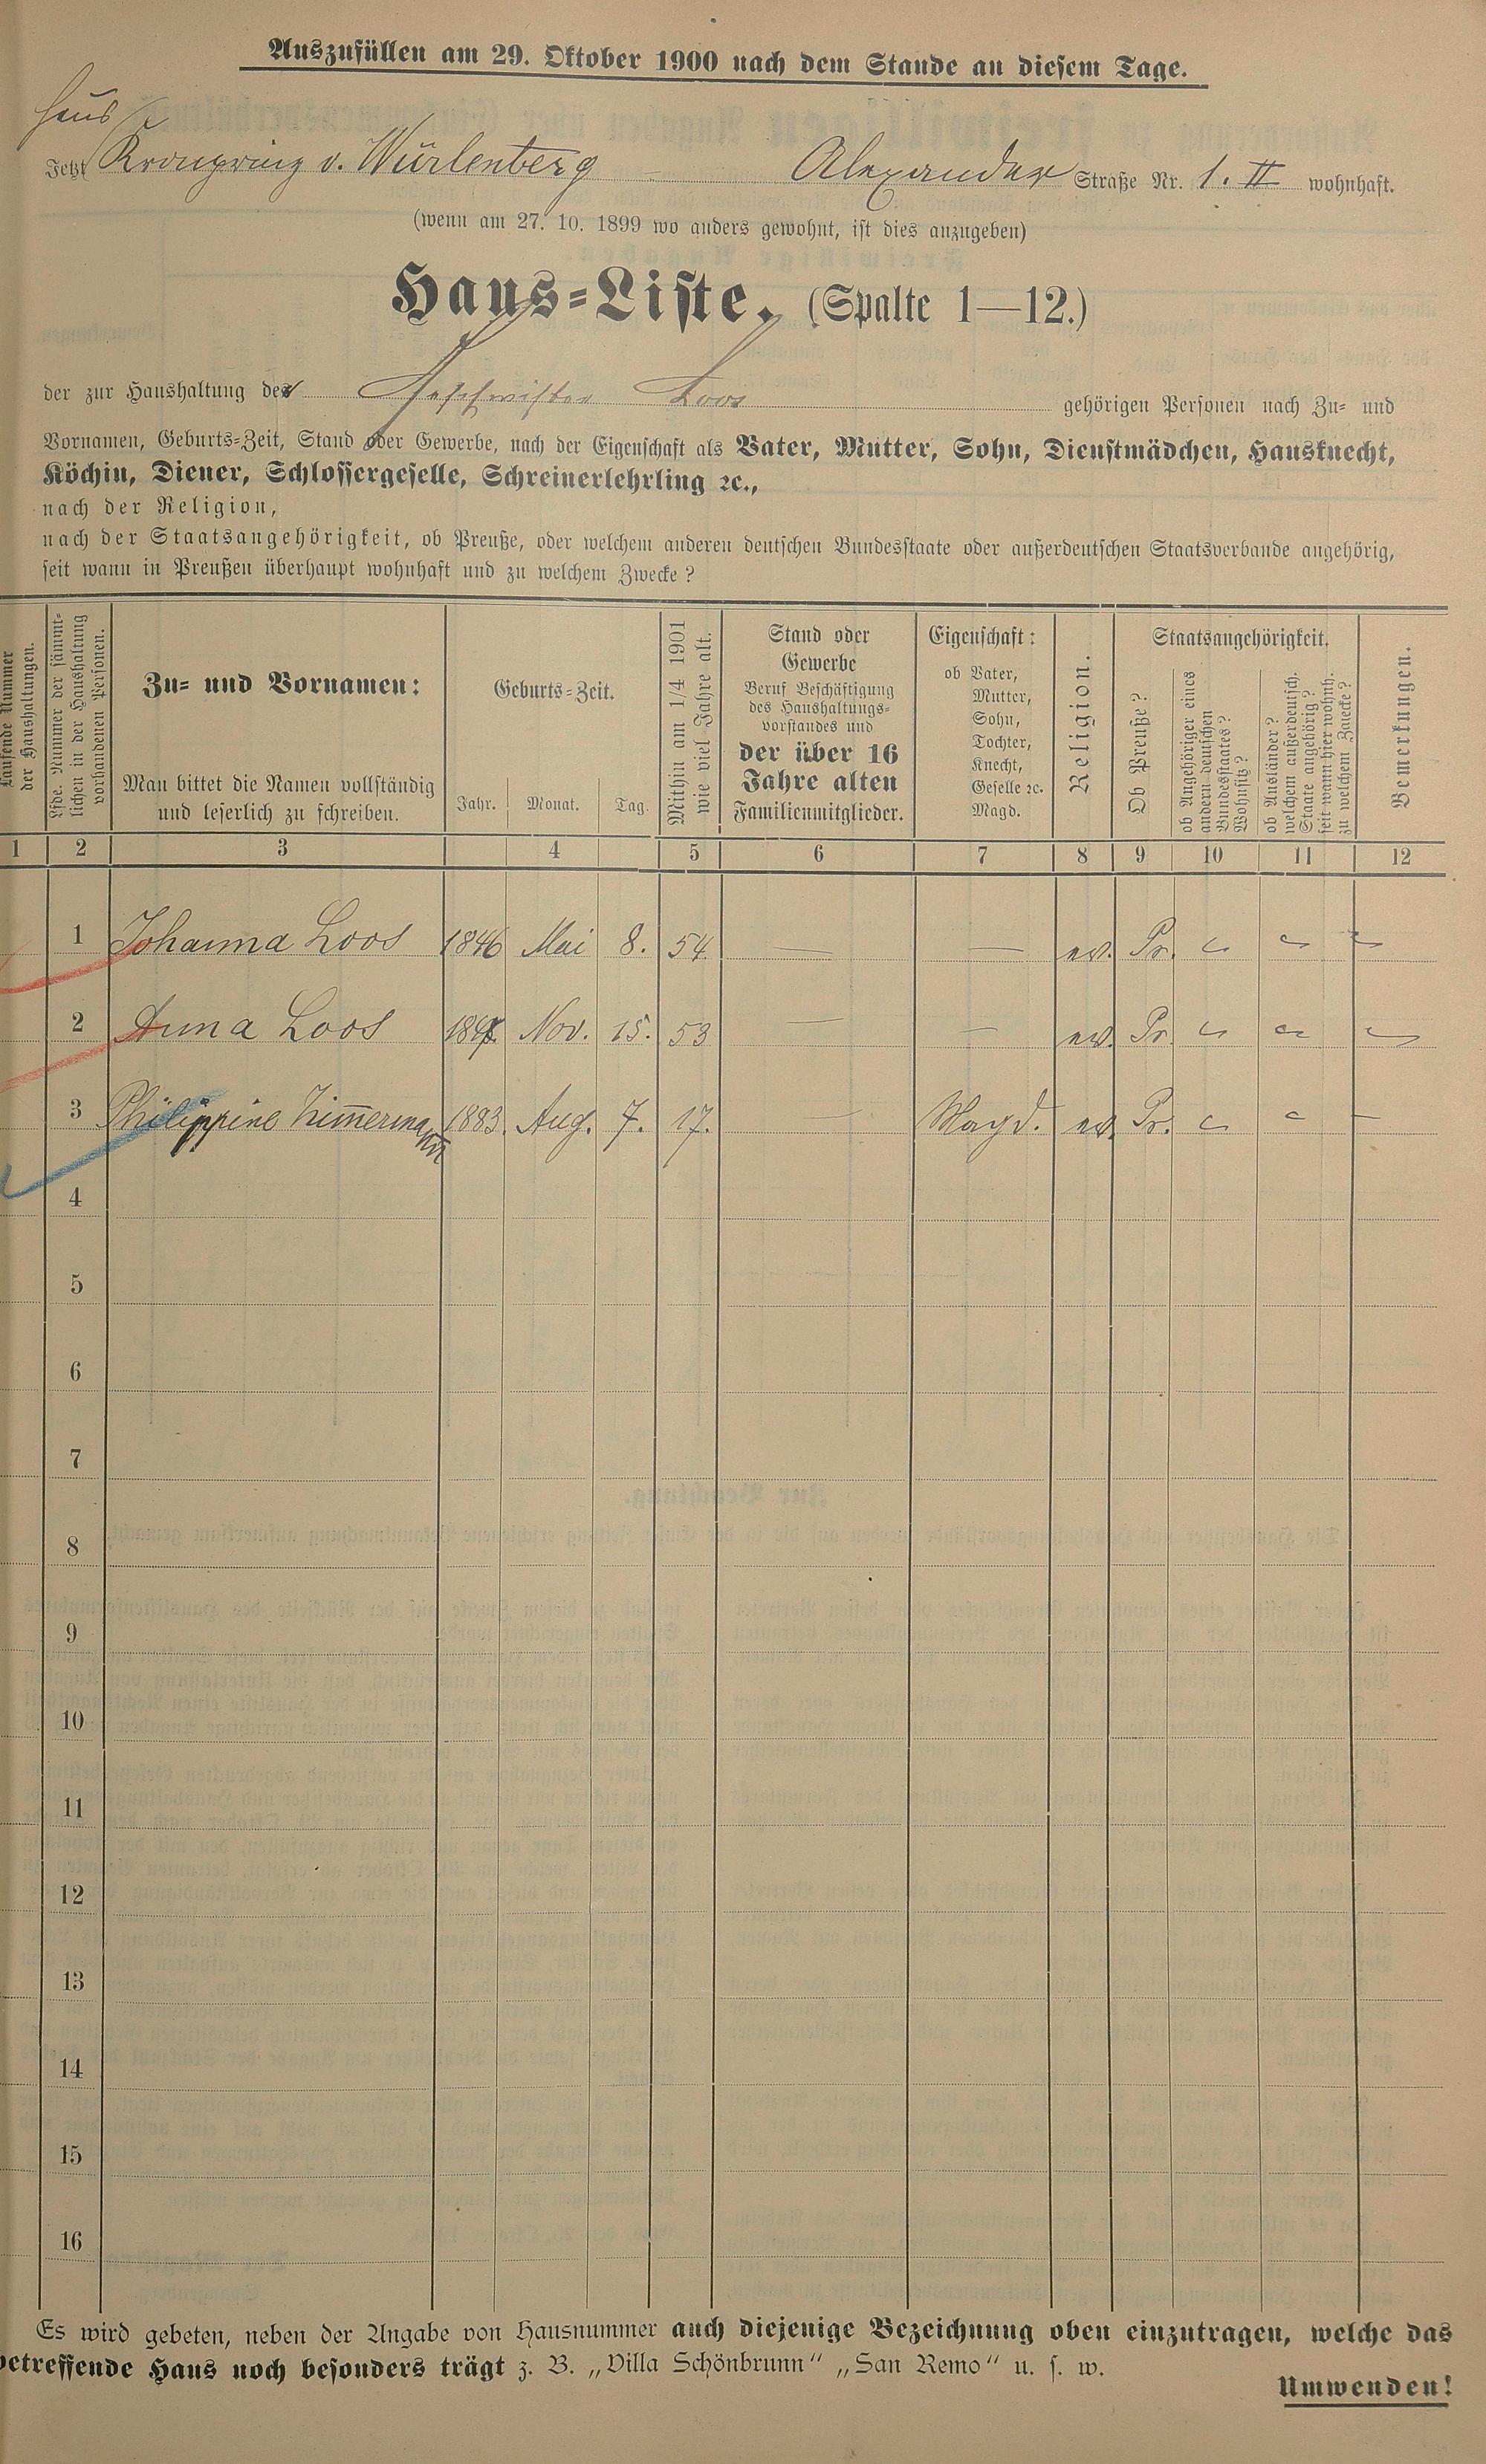 Auszufüllen am 29. Oktober 1900 nach dem Stande an diesem Tage.
Haus
Jetzt Kronprinz v. Würlenberg – Alexander Straße Nr. 1. II wohnhaft.
(wenn am 27. 10. 1899 wo anders gewohnt, ist dies anzugeben)
Haus=Liste. (Spalte 1—12.)
der zur Haushaltung der Geschwister Loos gehörigen Personen nach Zu= und
Vornamen, Geburts=Zeit, Stand oder Gewerbe, nach der Eigenschaft als Vater, Mutter, Sohn, Dienstmädchen, Hausknecht,
Köchin, Diener, Schlossergeselle, Schreinerlehrling ꝛc.,
nach der Religion,
nach der Staatsangehörigkeit, ob Preuße, oder welchem anderen deutschen Bundesstaate oder außerdeutschen Staatsverbande angehörig,
seit wann in Preußen überhaupt wohnhaft und zu welchem Zwecke?
Laufende Nummer
der Haushaltungen.
Lfde. Nummer der sämmt-
lichen in der Haushaltung
vorhandenen Personen.
Zu= und Vornamen:
Man bittet die Namen vollständig
und leserlich zu schreiben.
Geburts=Zeit.
Jahr. Monat. Tag.
Mithin am 1/4 1901
wie viel Jahre alt.
Stand oder
Gewerbe
Beruf Beschäftigung
des Haushaltungs=
vorstandes und
der über 16
Jahre alten
Familienmitglieder.
Eigenschaft:
ob Vater,
Mutter,
Sohn,
Tochter,
Knecht,
Geselle ꝛc.
Magd.
Religion.
Staatsangehörigkeit.
Ob Preuße?
ob Angehöriger eines
andern deutschen
Bundesstaates?
Wohnsitz?
ob Ausländer?
welchem außerdeutsch.
Staate angehörig?
seit wann hier wohnh.
zu welchem Zwecke?
Bemerkungen.
1 2 3 4 5 6 7 8 9 10 11 12
1 Johanna Loos 1846 Mai 8. 54 — — ev. Pr.
2 Anna Loos 1847 Nov. 15. 53 — — ev. Pr.
3 Philippine Zimmermann 1883. Aug. 7. 17. — Magd. ev. Pr. —
4
5
6
7
8
9
10
11
12
13
14
15
16
Es wird gebeten, neben der Angabe von Hausnummer auch diejenige Bezeichnung oben einzutragen, welche das
betreffende Haus noch besonders trägt z. B. „Villa Schönbrunn“ „San Remo“ u. s. w.
Umwenden!